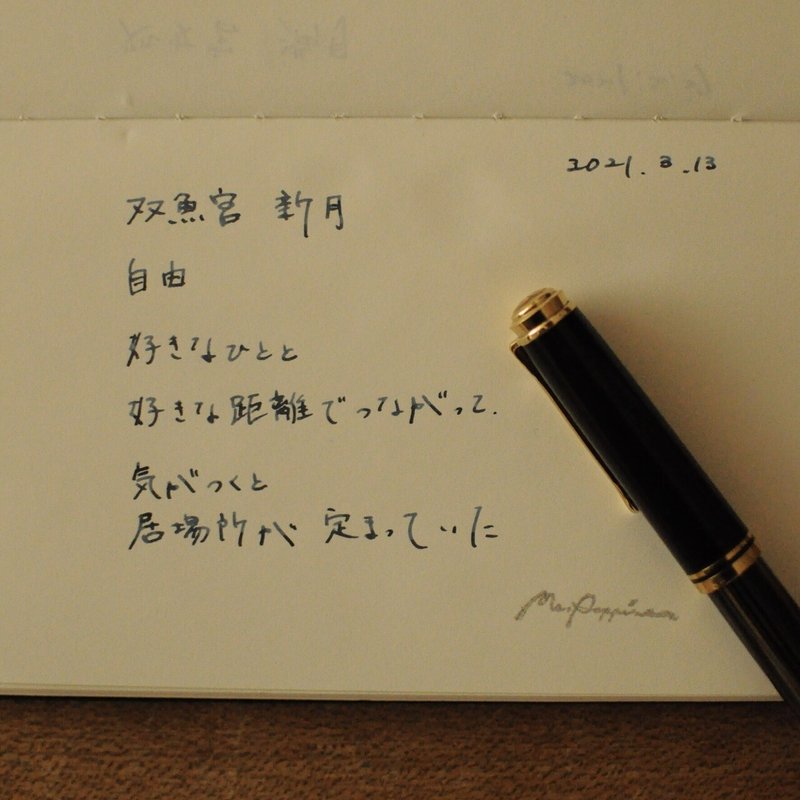 2021.3.13
双魚宮 新月
自由
好きなひとと
好きな距離でつながって.
気がつくと
居場所が 定まっていた